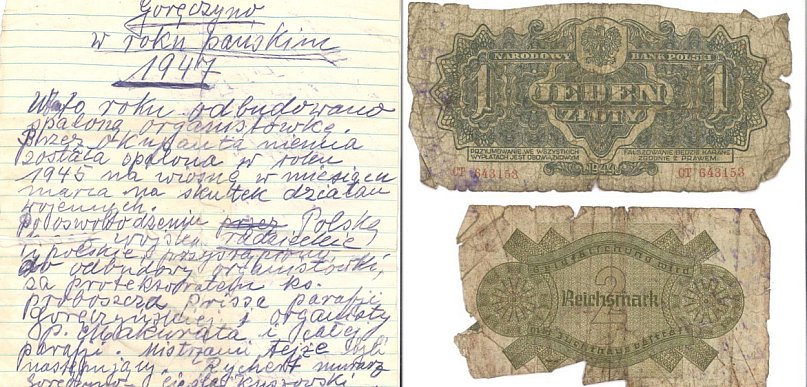 Goręczyno
w roku pańskim
1947
W to roku odbudowano
spaloną organistówkę.
Przez okupanta niemca
została spalona w roku
1945 na wiosnę w miesiącu
marca na skutek działań
wojennych.
po oswobodzeniu przez Polskę
wojska radzieckie
i polskie przystąpiono
do odbudowy organistówki,
za protektoratem ks.
proboszcza Prissa parafji
Goręczyńskiej i organisty
p. i całej
parafji. Mistrzami tejże byli
następujący. Rychert murarz
Goręczyno - cieśla
NARODOWY BANK POLSKI
1 JEDEN 1
ZŁOTY
PRZYJMOWANIE WE WSZYSTKICH
WYPŁATACH JEST OBOWIĄZKOWYM
FAŁSZOWANIE BĘDZIE KARANE
ZGODNIE Z PRAWEM
1944
СТ 643153 СТ 643153
2
Reichsmark